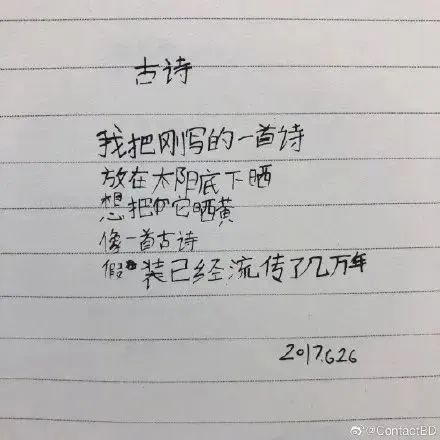 古诗
我把刚写的一首诗
放在太阳底下晒
想把它晒黄
像一首古诗
假装已经流传了几万年
2017.6.26
@ContactBD